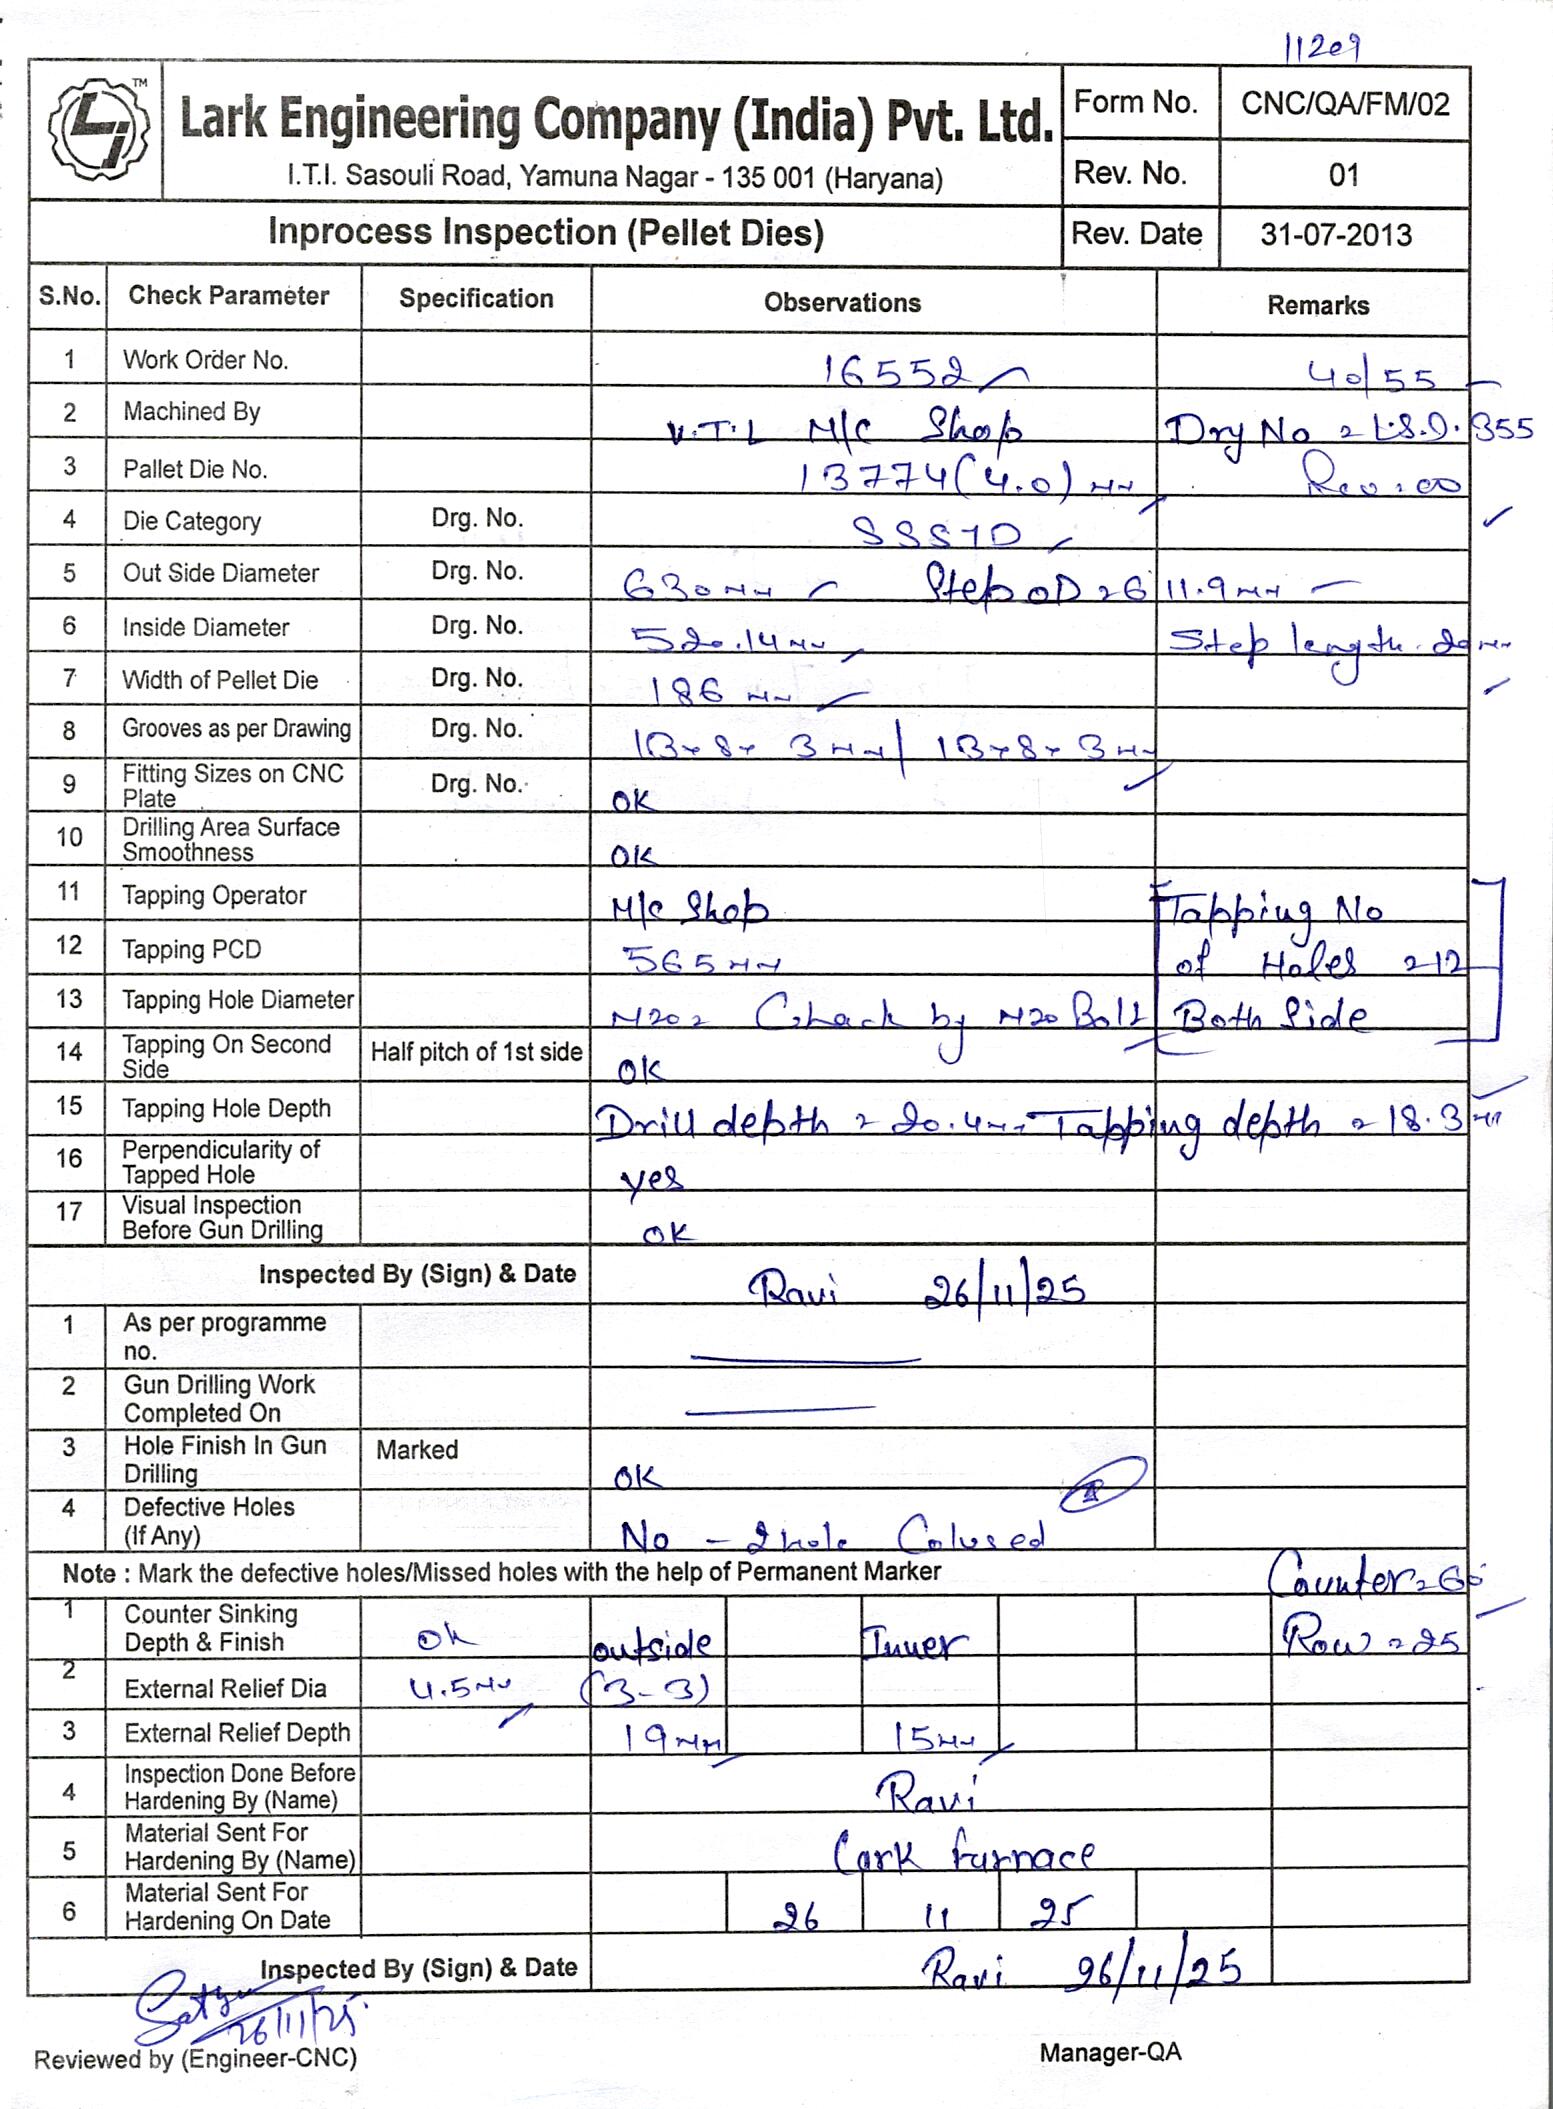 11209
TM
Lark Engineering Company (India) Pvt. Ltd.
I.T.I. Sasouli Road, Yamuna Nagar - 135 001 (Haryana)
Form No. CNC/QA/FM/02
Rev. No. 01
Inprocess Inspection (Pellet Dies) Rev. Date 31-07-2013
S.No. Check Parameter Specification Observations Remarks
1 Work Order No. 16552 40/55
2 Machined By V.T.L M/C Shop Drg No = L.S.D. 355
3 Pallet Die No. 13774(4.0) mm Rev:00
4 Die Category Drg. No. SSS7D
5 Out Side Diameter Drg. No. 630mm Step OD = 611.9mm
6 Inside Diameter Drg. No. 520.14mm Step length. 20mm
7 Width of Pellet Die Drg. No. 186 mm
8 Grooves as per Drawing Drg. No. 13x8x3mm/13x8x3mm
9 Fitting Sizes on CNC Plate Drg. No. OK
10 Drilling Area Surface Smoothness OK
11 Tapping Operator M/C Shop Tapping No
12 Tapping PCD 565mm of Holes = 12
13 Tapping Hole Diameter M20 = Chack by M20 Bolt Both Side
14 Tapping On Second Side Half pitch of 1st side OK
15 Tapping Hole Depth Drill depth = 20.4mm Tapping depth = 18.3mm
16 Perpendicularity of Tapped Hole yes
17 Visual Inspection Before Gun Drilling OK
Inspected By (Sign) & Date Ravi 26/11/25
1 As per programme no.
2 Gun Drilling Work Completed On
3 Hole Finish In Gun Drilling Marked OK
4 Defective Holes (If Any) No - 2 hole Colused
Note : Mark the defective holes/Missed holes with the help of Permanent Marker Counter =
1 Counter Sinking Depth & Finish Ok outside Inner Row = 25
2 External Relief Dia 4.5mm (3-3)
3 External Relief Depth 19mm 15mm
4 Inspection Done Before Hardening By (Name) Ravi
5 Material Sent For Hardening By (Name) Lark furnace
6 Material Sent For Hardening On Date 26 11 25
Inspected By (Sign) & Date Ravi 26/11/25
26/11/25
Reviewed by (Engineer-CNC) Manager-QA